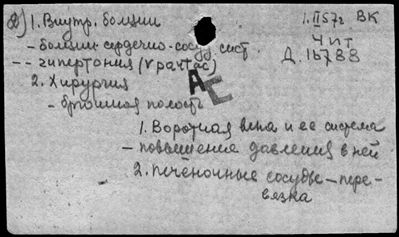 1. Внутр. болезни
1. II 57г ВК
- болезни сердечно-сосуд. сист.
Чит
-- гипертония
Д. 16788
2. Хирургия
АЕ
- брюшная полость
1. Воротная вена и ее система
- повышение давления в ней
2. Печёночные сосуды - пере-
вязка